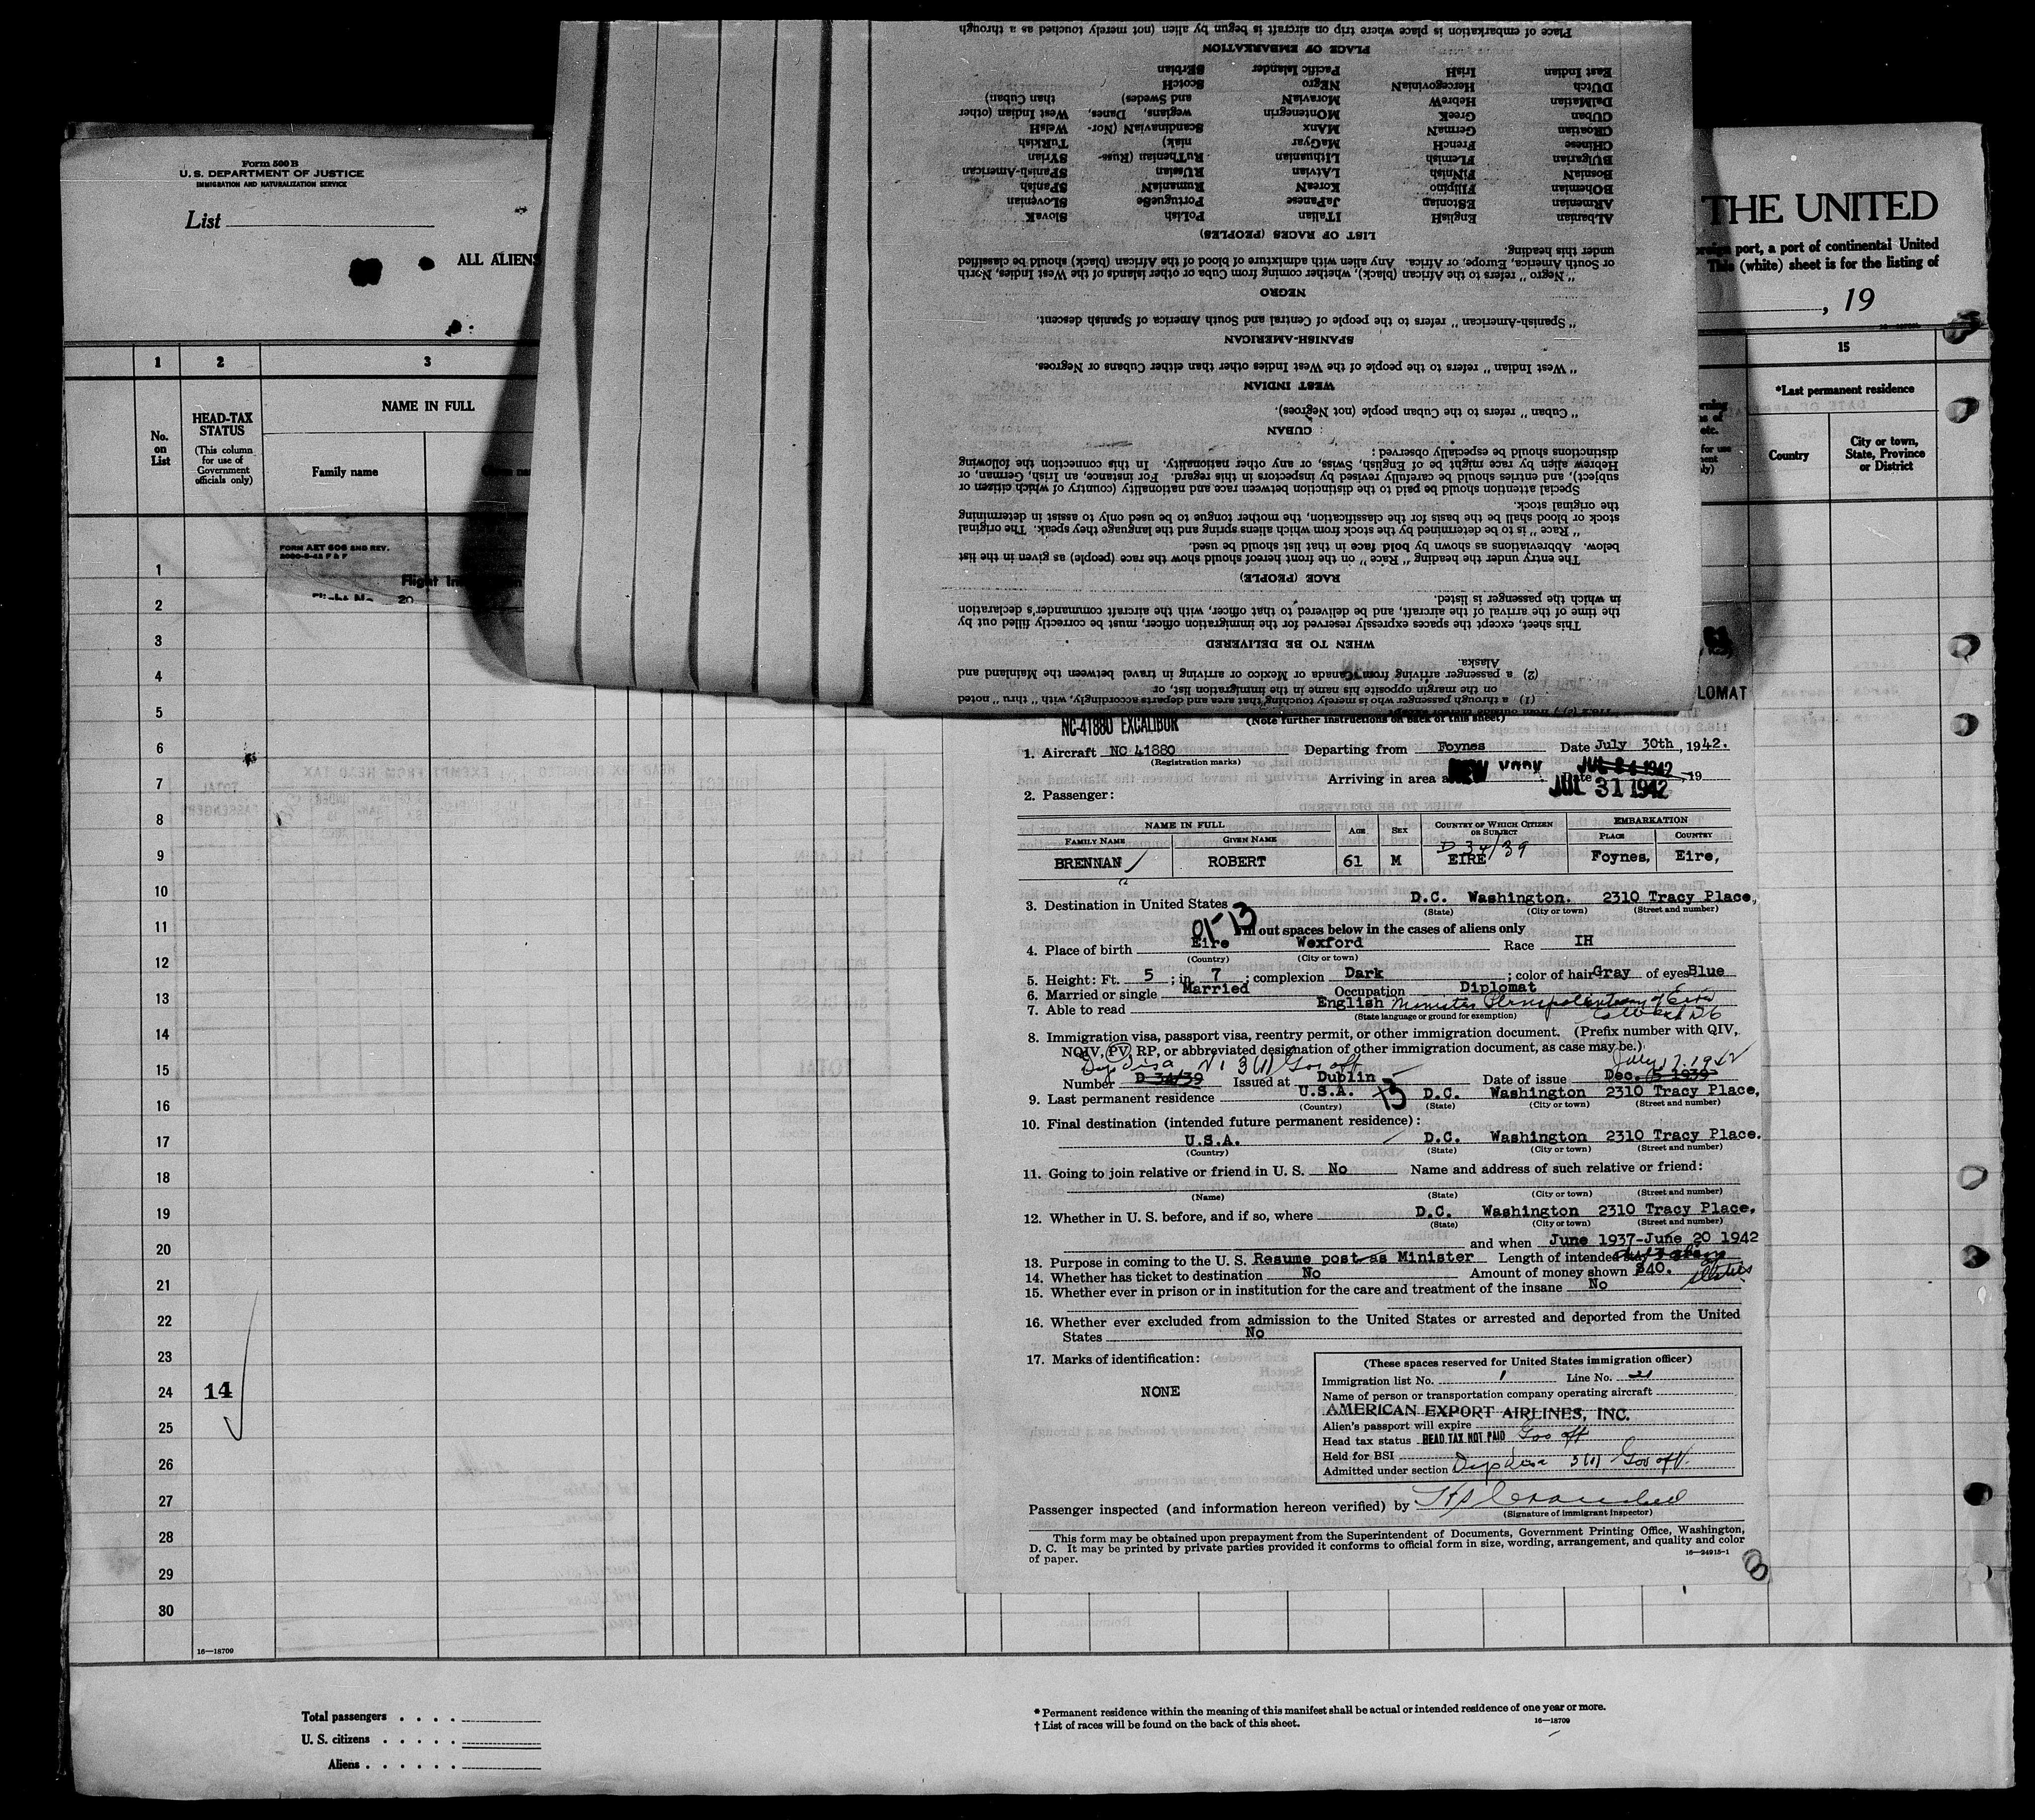 Form 500 B
U. S. DEPARTMENT OF JUSTICE
IMMIGRATION AND NATURALIZATION SERVICE
List
ALL ALIENS
THE UNITED
port, a port of continental United
This (white) sheet is for the listing of
, 19
1 2 3 15
No. on List
HEAD-TAX STATUS
(This column for use of Government officials only)
NAME IN FULL
Family name
*Last permanent residence
Country
City or town, State, Province or District
FORM AET 606 2ND REV.
Flight
20
1
2
3
4
5
6
7
8
9
10
11
12
13
14
15
16
17
18
19
20
21
22
23
24 14
25
26
27
28
29
30
16—18709
Total passengers . . . .
U. S. citizens . . . . .
Aliens . . . . . .
* Permanent residence within the meaning of this manifest shall be actual or intended residence of one year or more.
† List of races will be found on the back of this sheet.
16—18709
(1) a through passenger who is merely touching that area and departs accordingly, with "thru" noted
on the margin opposite his name in the immigration list, or
(2) a passenger arriving from Canada or Mexico or arriving in travel between the Mainland and
Alaska.
WHEN TO BE DELIVERED
This sheet, except the spaces expressly reserved for the immigration officer, must be correctly filled out by
the time of the arrival of the aircraft, and be delivered to that officer, with the aircraft commander's declaration
in which the passenger is listed.
RACE (PEOPLE)
The entry under the heading "Race" on the front hereof should show the race (people) as given in the list
below. Abbreviations as shown by bold face in that list should be used.
"Race" is to be determined by the stock from which aliens spring and the language they speak. The original
stock or blood shall be the basis for the classification, the mother tongue to be used only to assist in determining
the original stock.
Special attention should be paid to the distinction between race and nationality (country of which citizen or
subject), and entries should be carefully revised by inspectors in this regard. For instance, an Irish, German, or
Hebrew alien by race might be of English, Swiss, or any other nationality. In this connection the following
distinctions should be especially observed:
CUBAN
"Cuban" refers to the Cuban people (not Negroes).
WEST INDIAN
"West Indian" refers to the people of the West Indies other than either Cubans or Negroes.
SPANISH-AMERICAN
"Spanish-American" refers to the people of Central and South America of Spanish descent.
NEGRO
"Negro" refers to the African (black), whether coming from Cuba or other islands of the West Indies, North
or South America, Europe, or Africa. Any alien with admixture of blood of the African (black) should be classified
under this heading.
LIST OF RACES (PEOPLES)
ALbanian EngliSH ITalian POLish SlovaK
ARmenian EStonian JaPanese PortugueSe SLOvenian
BOhemian FIlipino KoreaN RumaniaN SPanish
BosniaN FiNnish LAtvian RUssian SPanish-American
BUlgarian FLemish LIthuanian RuThenian (Russ- SYrian
CHinese FrencH MaGyar niak) TuRkish
CRoatian GermaN MAnx ScandinaviaN (Nor- WelsH
CUban GreeK MOntenegrin wegians, Danes, West Indian (other
DaLMatian HebreW MoraviaN and Swedes) than Cuban)
DUtch HercegoviniaN NEgro ScotcH
East Indian IrisH Pacific Islander SErbian
PLACE OF EMBARKATION
Place of embarkation is place where trip on aircraft is begun by alien (not merely touched as a through
NC-41880 EXCALIBUR
(Note further instructions on back of this sheet)
1. Aircraft NC 41880 Departing from Foynes Date July 30th, 1942.
(Registration marks)
Arriving in area at NEW YORK Date JUL 31 1942, 19
2. Passenger:
NAME IN FULL AGE SEX COUNTRY OF WHICH CITIZEN OR SUBJECT EMBARKATION
FAMILY NAME GIVEN NAME PLACE COUNTRY
D 34/39
BRENNAN ROBERT 61 M EIRE Foynes, Eire,
3. Destination in United States D.C. Washington. 2310 Tracy Place,
(State) (City or town) (Street and number)
01-13
Fill out spaces below in the cases of aliens only
4. Place of birth Eire Wexford Race IH
(Country) (City or town)
5. Height: Ft. 5 ; in. 7 ; complexion Dark ; color of hair Gray of eyes Blue
6. Married or single Married Occupation Diplomat
7. Able to read English Minister Plenipotentiary of Eire
(State language or ground for exemption)
8. Immigration visa, passport visa, reentry permit, or other immigration document. (Prefix number with QIV,
NQIV, PV, RP, or abbreviated designation of other immigration document, as case may be.)
Dip visa No 3(1) Gov off July 17, 1942
Number D 34/39 Issued at Dublin Date of issue Dec. 5 1939
9. Last permanent residence U.S.A. D.C. Washington 2310 Tracy Place,
(Country) (State) (City or town) (Street and number)
10. Final destination (intended future permanent residence):
U.S.A. D.C. Washington 2310 Tracy Place.
(Country) (State) (City or town) (Street and number)
11. Going to join relative or friend in U. S. No Name and address of such relative or friend:
(Name) (State) (City or town) (Street and number)
12. Whether in U. S. before, and if so, where D.C. Washington 2310 Tracy Place,
(State) (City or town) (Street and number)
and when June 1937-June 20 1942
13. Purpose in coming to the U. S. Resume post as Minister Length of intended stay
14. Whether has ticket to destination No Amount of money shown $40. status
15. Whether ever in prison or in institution for the care and treatment of the insane No
16. Whether ever excluded from admission to the United States or arrested and deported from the United
States No
17. Marks of identification:
NONE
(These spaces reserved for United States immigration officer)
Immigration list No. 1 Line No.
Name of person or transportation company operating aircraft
AMERICAN EXPORT AIRLINES, INC.
Alien's passport will expire
Head tax status HEAD TAX NOT PAID Gov off
Held for BSI
Admitted under section Dip visa 3(1) Gov off.
Passenger inspected (and information hereon verified) by
(Signature of immigrant inspector)
This form may be obtained upon prepayment from the Superintendent of Documents, Government Printing Office, Washington,
D. C. It may be printed by private parties provided it conforms to official form in size, wording, arrangement, and quality and color
of paper.
16—24915-1